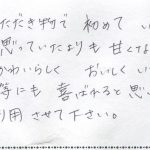 ただき判で 初めて い
思っていたよりも 甘とな
かわいらしく おいしく い
等にも 喜ばれると思い
利用 させて下さい。